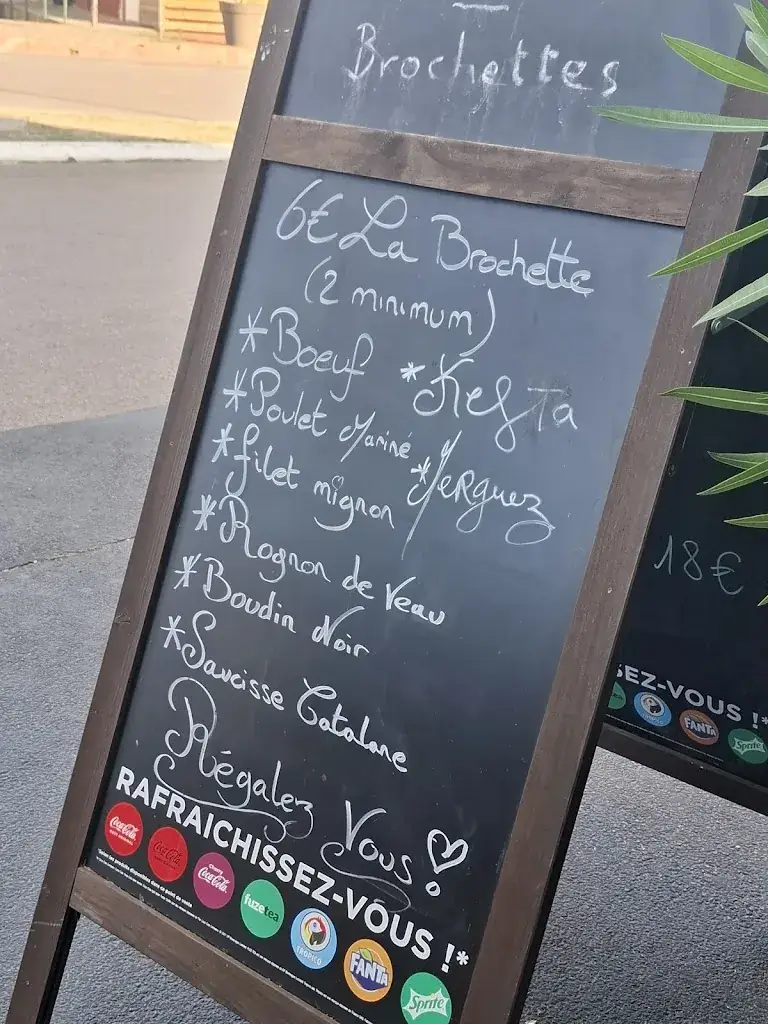 Brochettes
6€ La Brochette
(2 minimum)
*Boeuf *Kefta
*Poulet Mariné *Merguez
*filet mignon
*Rognon de Veau
*Boudin Noir
*Saucisse Catalane
Régalez Vous !
RAFRAICHISSEZ-VOUS !*
Coca-Cola
Coca-Cola
Cherry Coca-Cola
fuzetea
TROPICO
FANTA
Sprite
18€
SEZ-VOUS !*
FANTA
Sprite